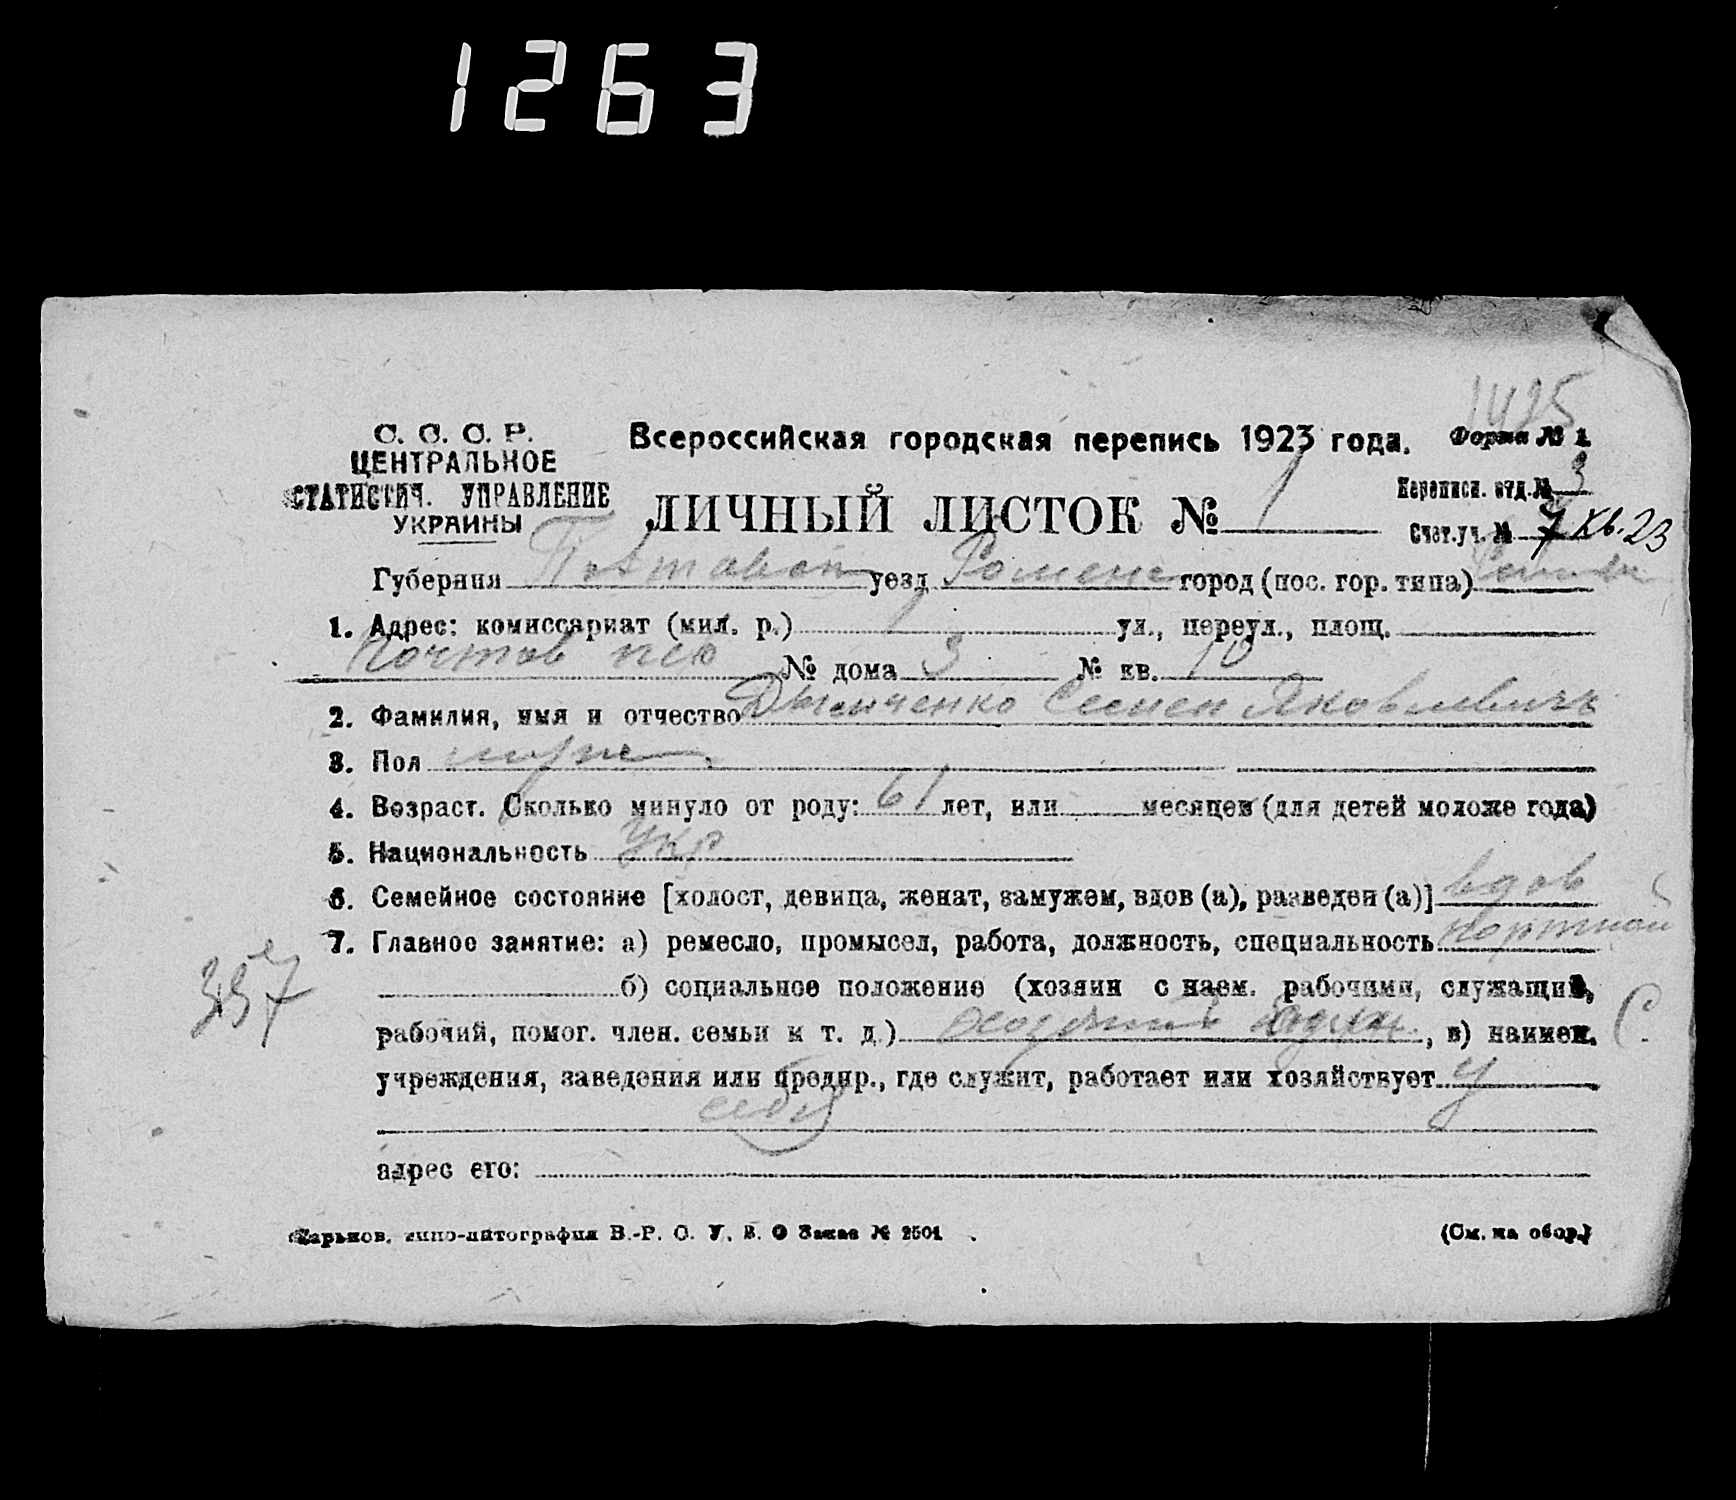 1263
1495
С. С. С. Р.
ЦЕНТРАЛЬНОЕ
СТАТИСТИЧ. УПРАВЛЕНИЕ
УКРАИНЫ
Всероссийская городская перепись 1923 года.
Форма № 1.
ЛИЧНЫЙ ЛИСТОК № 1
Переписн. отд. № 3
Счет. уч. № 7 кв. 23
Губерния Полтавск уезд Роменс город (пос. гор. типа) Ромны
1. Адрес: комиссариат (мил. р.) 1 ул., переул., площ.
Почтов № дома 3 № кв. 10
2. Фамилия, имя и отчество Семен Яковлевичъ
3. Пол муж
4. Возраст. Сколько минуло от роду: 61 лет, или месяцев (для детей моложе года)
5. Национальность Укр
6. Семейное состояние [холост, девица, женат, замужем, вдов (а), разведен (а)] вдов
7. Главное занятие: а) ремесло, промысел, работа, должность, специальность портной
б) социальное положение (хозяин с наем. рабочими, служащий,
357
рабочий, помог. член. семьи и т. д.) один, в) наимен. С.
учреждения, заведения или предпр., где служит, работает или хозяйствует у
себя
адрес его:
Харьков, типо-литография В.-Р. С. У. В. О Заказ № 2501
(См. на обор.)